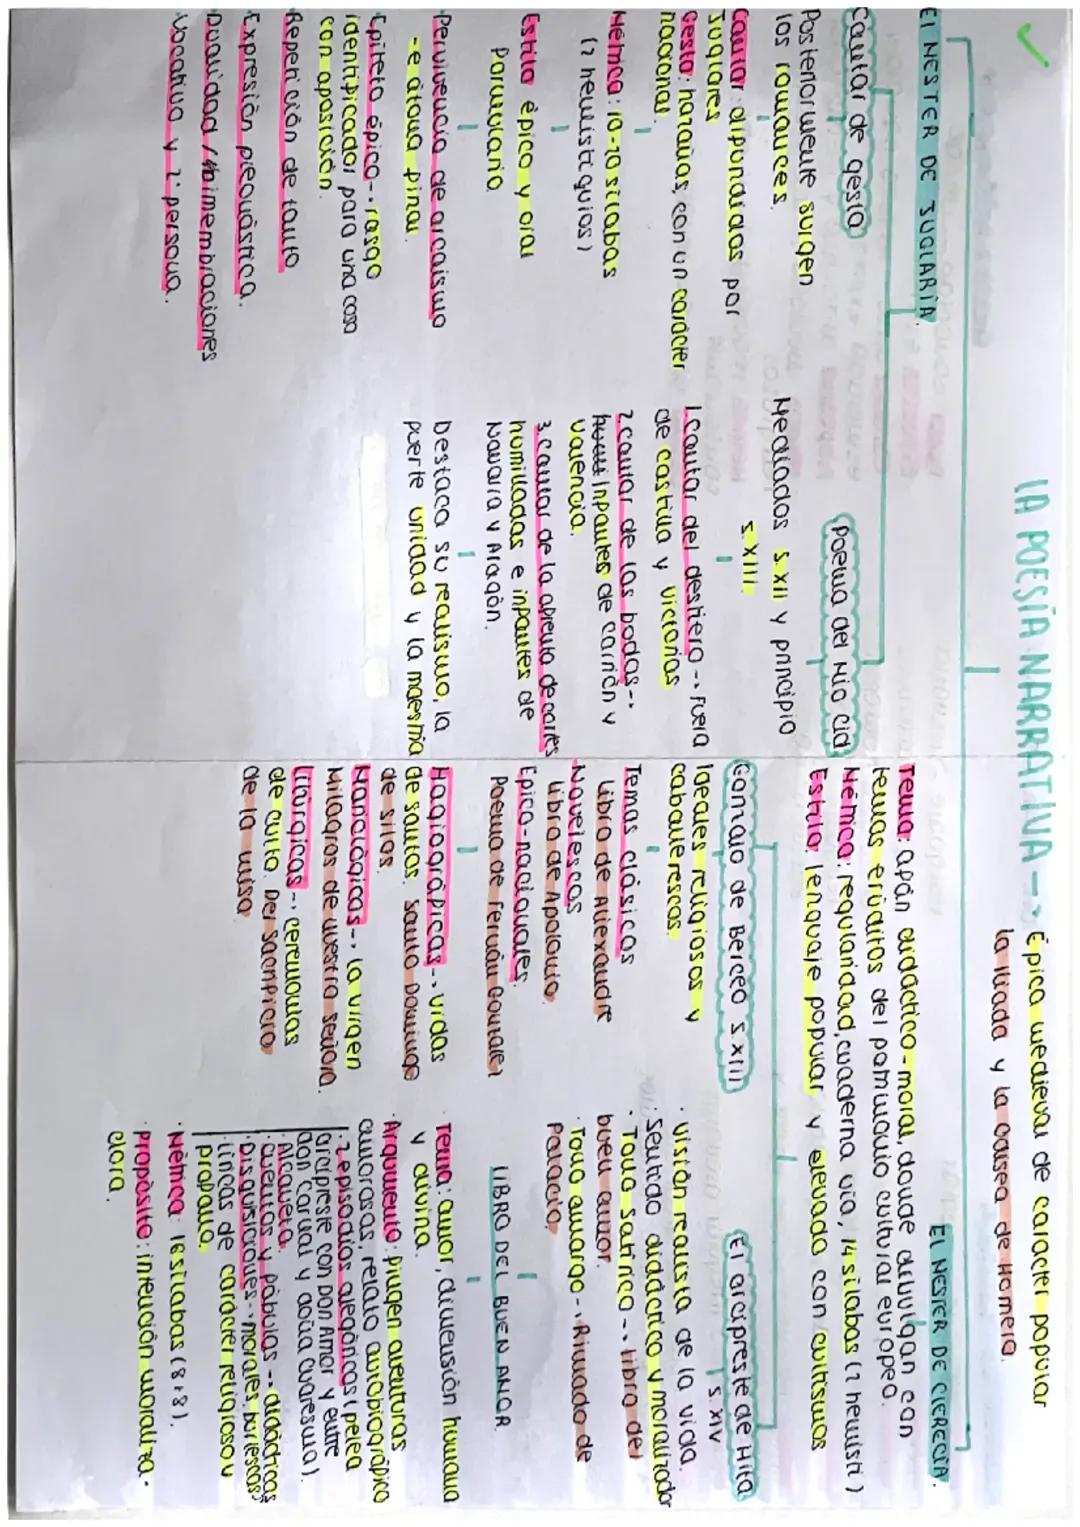 LA POESÍA NARRATIVA --> Épica medieval de carácter popular
la Iliada y la Odisea de Homero.
El MESTER DE JUGLARÍA.
Cantar de gesta
Posteriormente surgen
los romances.
Cantar: difundidas por
juglares
Gesta: hazañas, con un carácter
nacional.
Métrica: 10-70 sílabas
(2 hemistiquios)
Estilo épico y oral
Formulario
Pervivencia de arcaismo
-e átona final.
Epíteto épico--> rasgo
identificador para una cosa
con aposición.
Repetición de tanto
Expresión pleonástica.
Dualidad / bimembraciones
Vocativo y 2ª persona.
Poema del Mío Cid
Mediados s.XII y principio
s.XIII.
1.Cantar del destierro --> Fuera
de Castilla y victorias
2.Cantar de las bodas-->
Infantes de Carrión y
Valencia.
3.Cantar de la afrenta de cortes
humilladas e infantes de
Navarra y Aragón.
Destaca su realismo, la
fuerte unidad y la maestría
El MESTER DE CLERECÍA.
Tema: afán didáctico-moral, donde divulgan con
temas erúditos del patrimonio cultural europeo.
Métrica: regularidad, cuaderna vía, 14 sílabas (2 hemisti)
Estilo: lenguaje popular y elevado con cultismos
Gonzalo de Berceo s.XIII
Ideales religiosos y
caballerescos
Temas clásicos
Libro de Alixandre
Novelescos
Libro de Apolonio
Épico-nacionales.
Poema de Fernán González
Hagiográficas--> vidas
de santos. Santo Domingo
de Silos.
Marialógicas--> la virgen
Milagros de nuestra señora.
Litúrgicas--> ceremonias
de culto. Del sacrificio
de la misa
El arcipreste de Hita
s.XIV
· Visión realista de la vida.
· Sentido didáctico y moralizador
· Tono satírico --> libro del
buen amor.
· Tono amargo --> Rimado de
Palacio.
LIBRO DEL BUEN AMOR
· Tema: amor, dimensión humana
y divina.
· Argumento: fingen aventuras
amorosas, relato autobiográfico
· 2 episodios alegóricos (pelea
arcipreste con Don Amor y entre
don Carnal y doña Cuaresma).
· Alcahueta.
· Cuentos y fábulas --> didácticas
· Disquisiciones--> morales, burlescos
· Líricas de carácter religioso y
profano.
· Métrica: 16 sílabas (8+8).
· Propósito: intención moraliza-
dora.